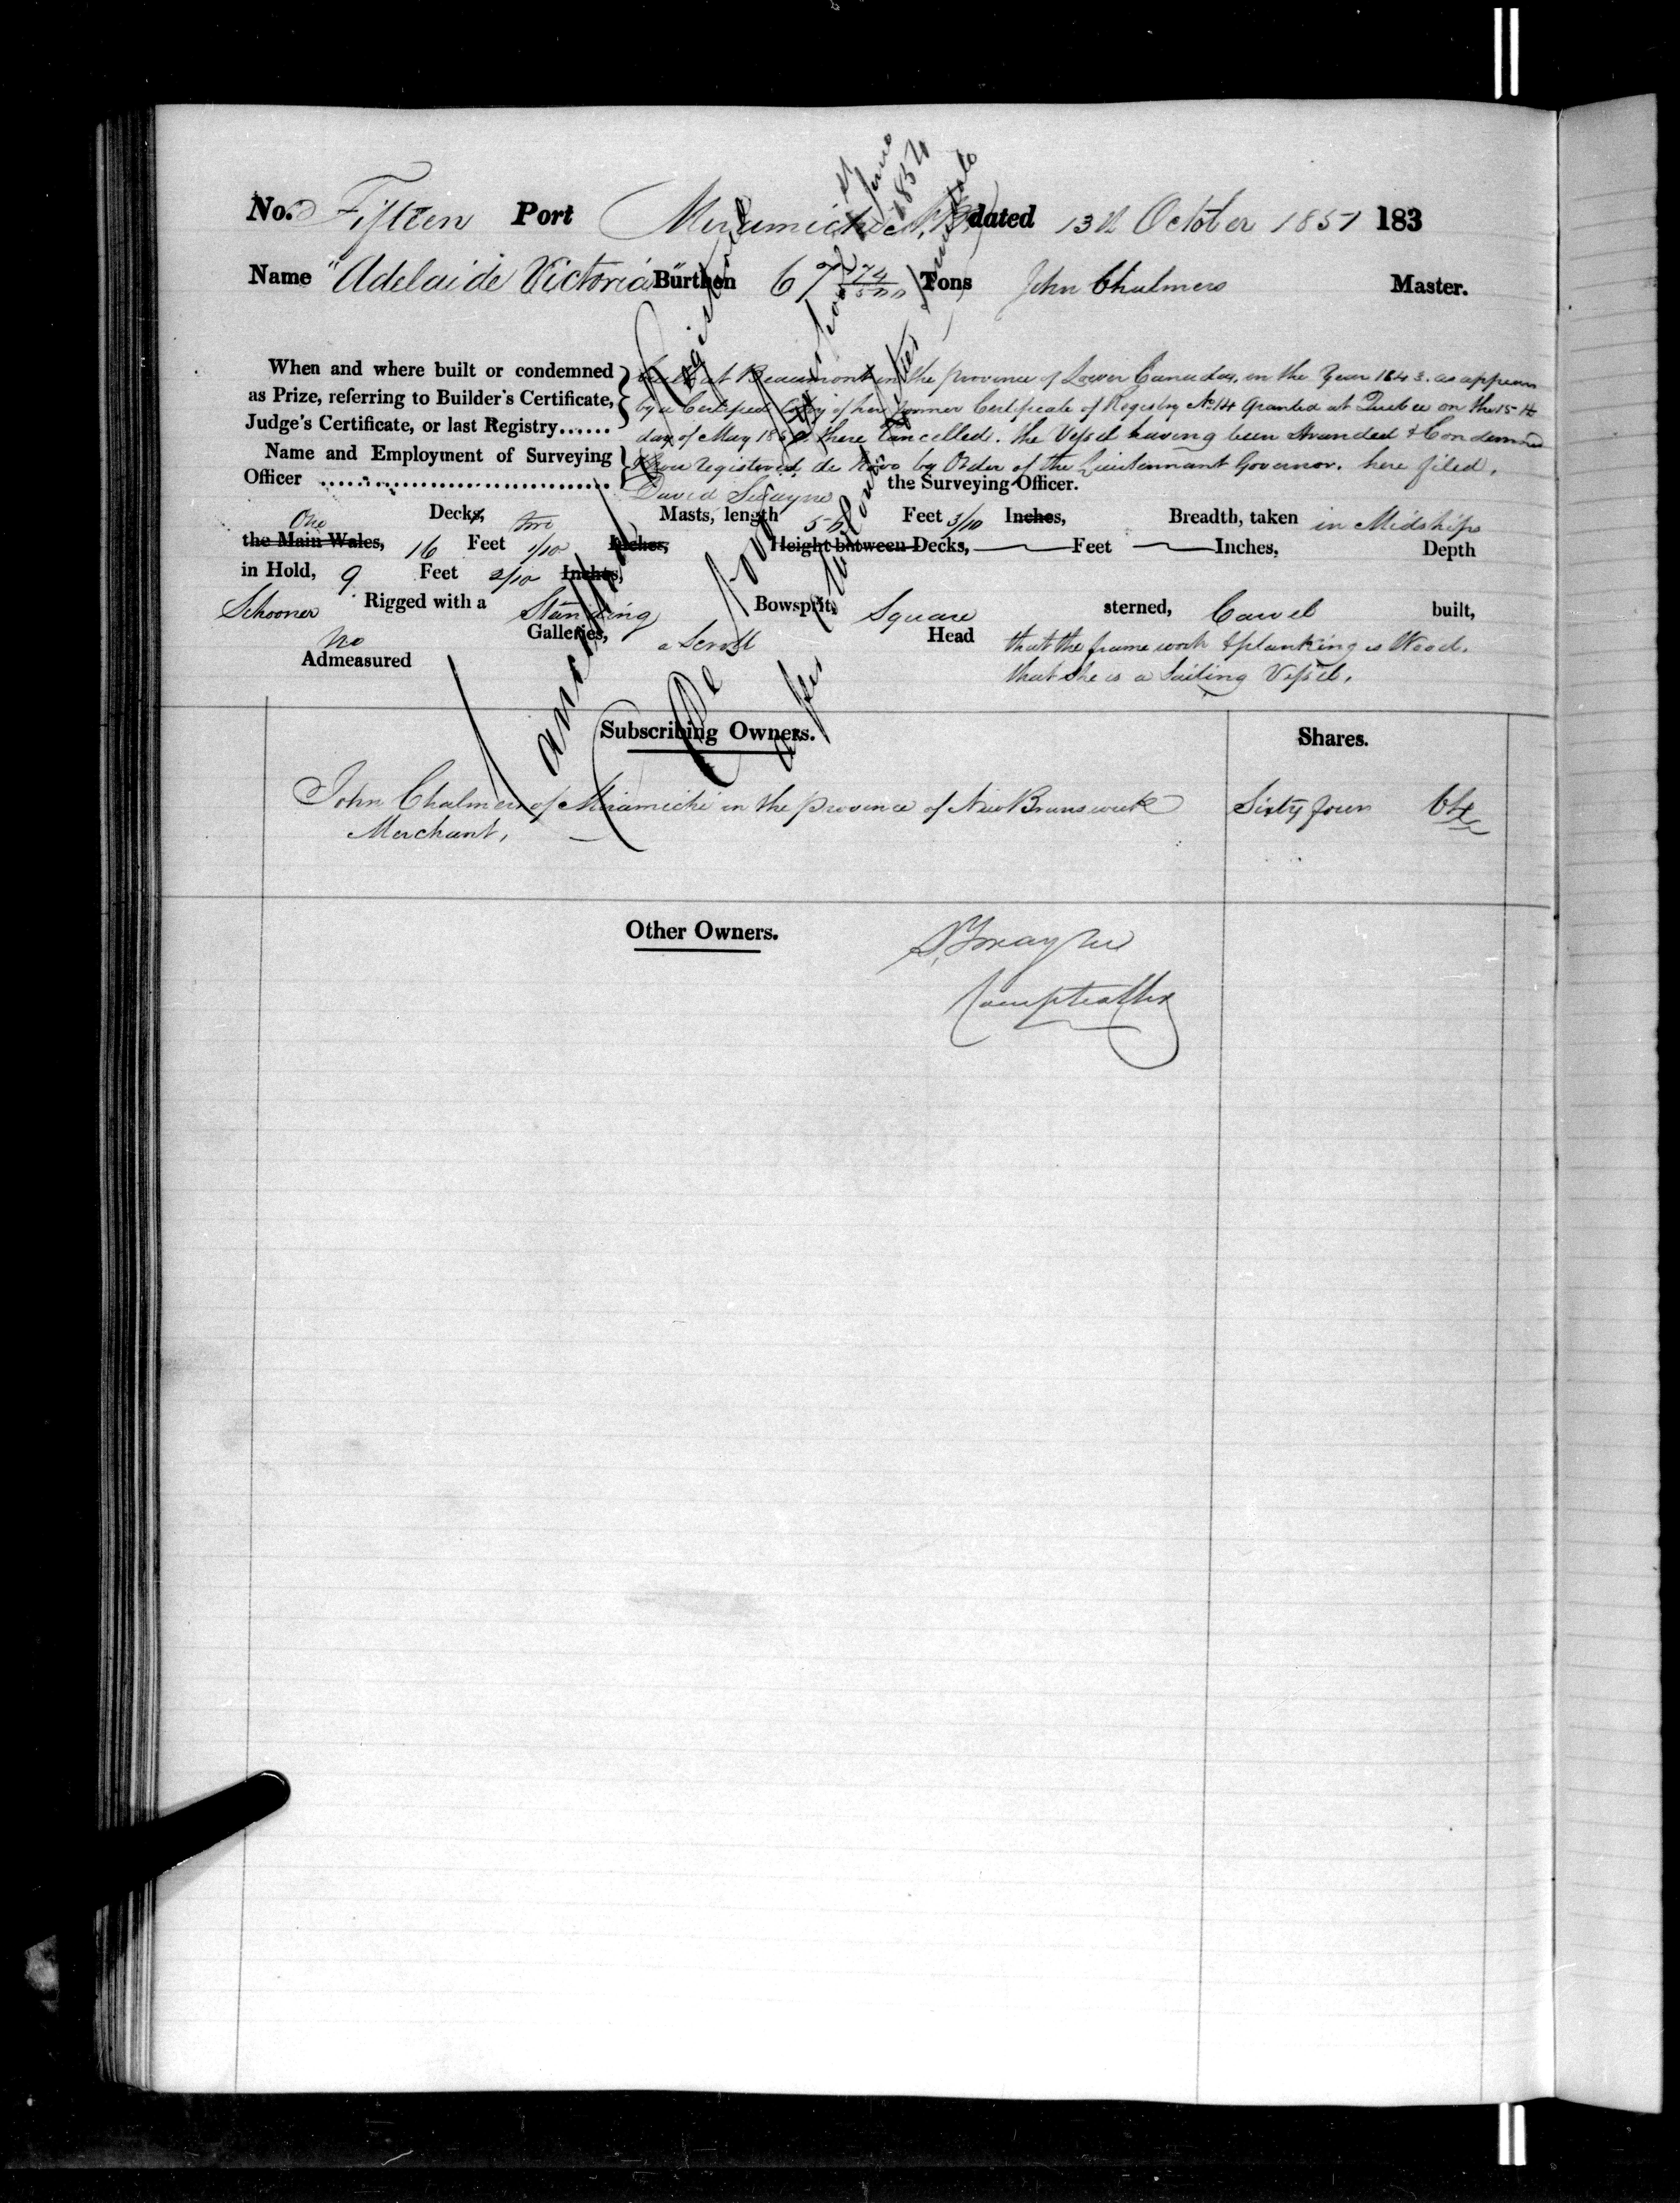 No. Fifteen Port Miramichi N.B. dated 13th October 1851 183
Name "Adelaide Victoria" Burthen 67 Tons John Chalmers Master.
When and where built or condemned
as Prize, referring to Builder's Certificate,
Judge's Certificate, or last Registry......
built at Beaumont in the province of Lower Canada, in the Year 1843. as appears
by a Certified Copy of her former Certificate of Registry No 14 Granted at Quebec on the 15th
day of May 1850. there Cancelled. the Vessel having been Stranded & Condemned
Name and Employment of Surveying
Officer
& now registered de Novo by Order of the Lieutennant Governor. here filed.
David Swayne the Surveying Officer.
One Decks, two Masts, length Feet 3/10 Inches, Breadth, taken in Midships
the Main Wales, 16 Feet 1/10 Inches, Height between Decks, Feet Inches, Depth
in Hold, 9 Feet 2/10 Inches,
Schooner Rigged with a Standing Bowsprit, Square sterned, Carvel built,
no Galleries, a Scroll Head that the frame work & planking is Wood.
Admeasured that she is a Sailing Vessel.
Subscribing Owners. Shares.
John Chalmers of Miramichi in the province of New Brunswick Sixty four 64
Merchant,
Other Owners.
D. Swayne
Comptroller
Cancelled Registered
June
1854